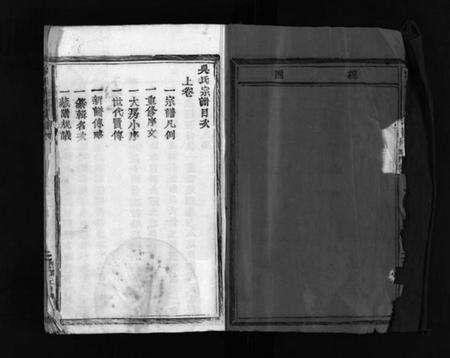 吳氏宗譜目次
上卷
一宗譜凡例
一重修序文
一大房小序
一世代賢傳
一新譜傳略
一纂輯名次
一藏譜規議